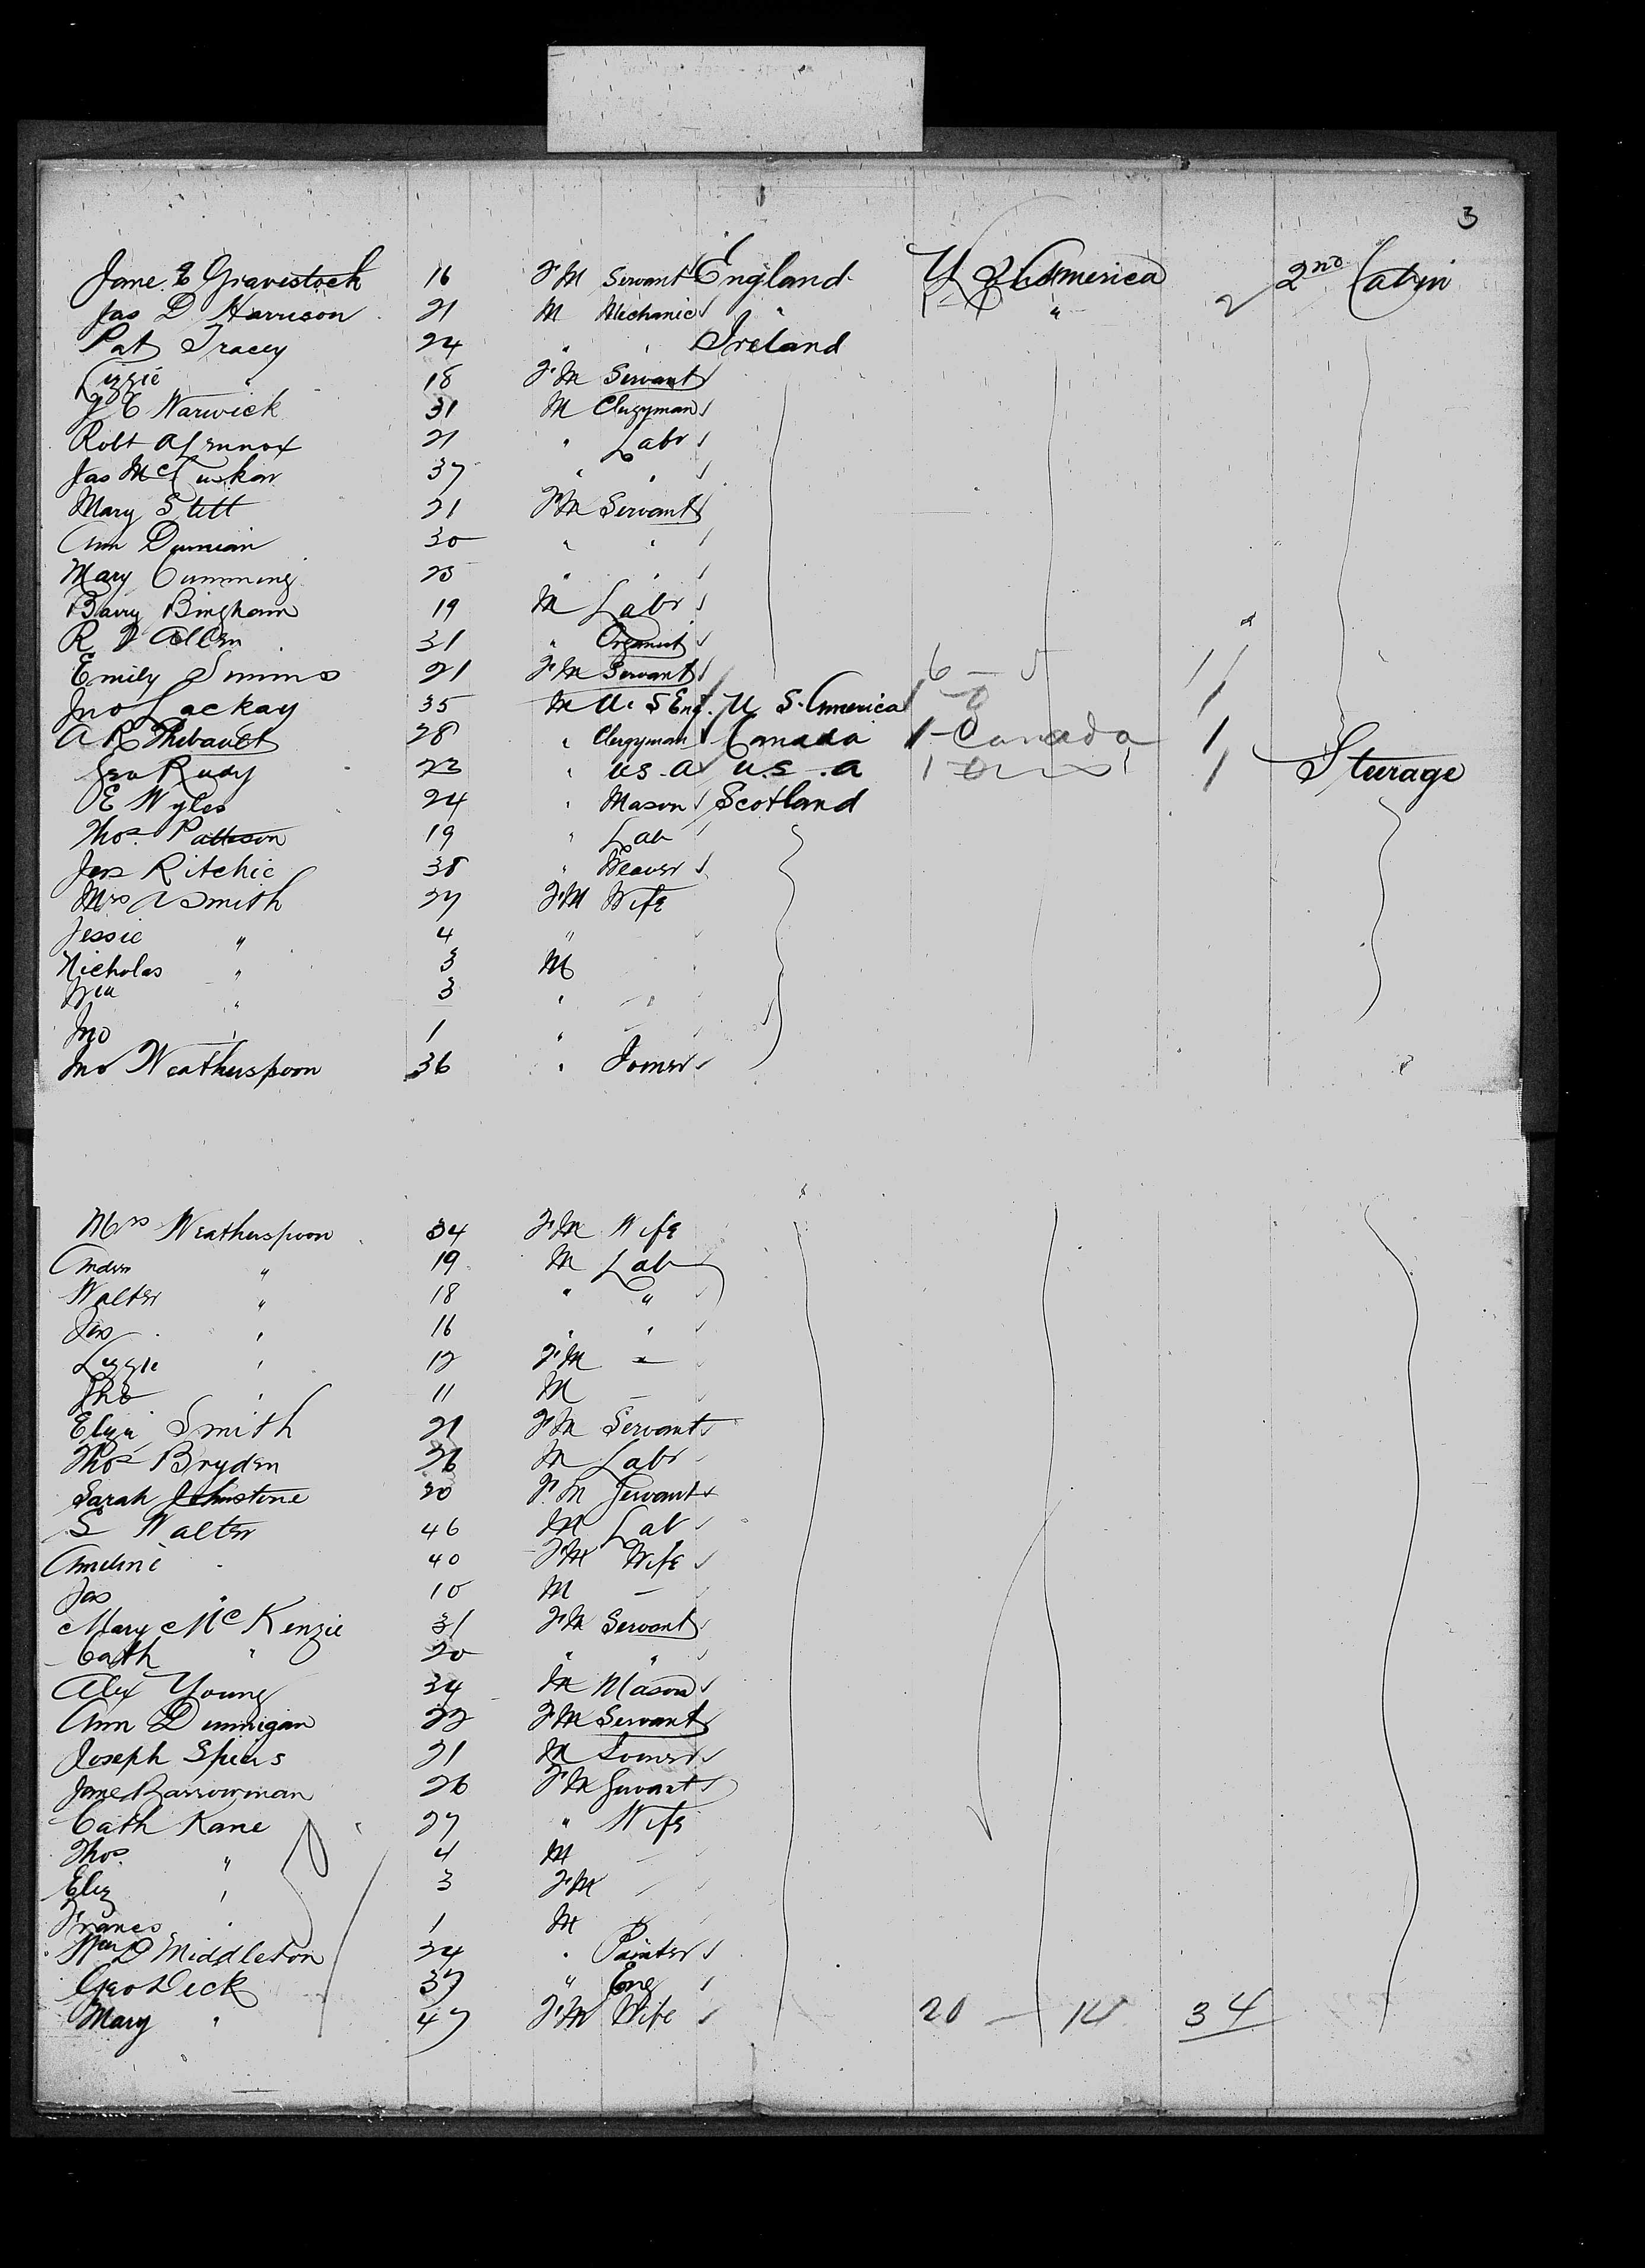 3
Jane E Gravestock 16 F M Servant England U S America 2nd Cabin
Jas D Harrison 21 M Mechanic " 2
Pat Tracey 24 " " Ireland
Lizzie " 18 F M Servant
J E Warwick 31 M Clergyman
Robt 21 " Labr
Jas 37 " "
Mary Stitt 21 F M Servant
Ann 30 " "
Mary Cumming 23 " "
Barry Bingham 19 M Labr
R Allen 31 "
Emily Simms 21 F M Servant 6 - 5 11
Jno Lackay 35 M U. S Eng. U S. America 1 - 0 1
A R Thibault 28 " Clergyman Canada 1 - Canada 1
Geo Rudy 23 " U S. A U.S. A 1 Steerage
E Wyles 24 " Mason Scotland
Thos. Patteson 19 " Lab
Jas Ritchie 38 " Weaver
Mrs A Smith 27 F M Wife
Jessie " 4 "
Nicholas " 3 M
" 3 "
Jno " 1 "
Jno Weatherspoon 36 " Joiner
Mrs Weatherspoon 34 F M Wife
Andw " 19 M Lab
Walter " 18 " "
Jas " 16 " "
Lizzie " 12 F M -
" 11 M -
Eliza Smith 21 F M Servant
Thos Bryden 26 M Labr
Sarah Johnstone 20 F M Servant
S Walter 46 M Lab
40 F M Wife
Jas " 10 M -
Mary McKenzie 31 F M Servant
Cath " 20 " "
Alex Young 34 M Mason
Ann Dunnigan 22 F M Servant
Joseph Spiers 21 M Joiner
Jane Barrowman 26 F M Servant
Cath Kane 27 " Wife
Thos " 4 M -
Eliz " 3 F M
Francs " 1 M
Wm D Middleton 34 " Painter
Geo Dick 37 " Eng
Mary " 47 F M Wife 20 - 14 34